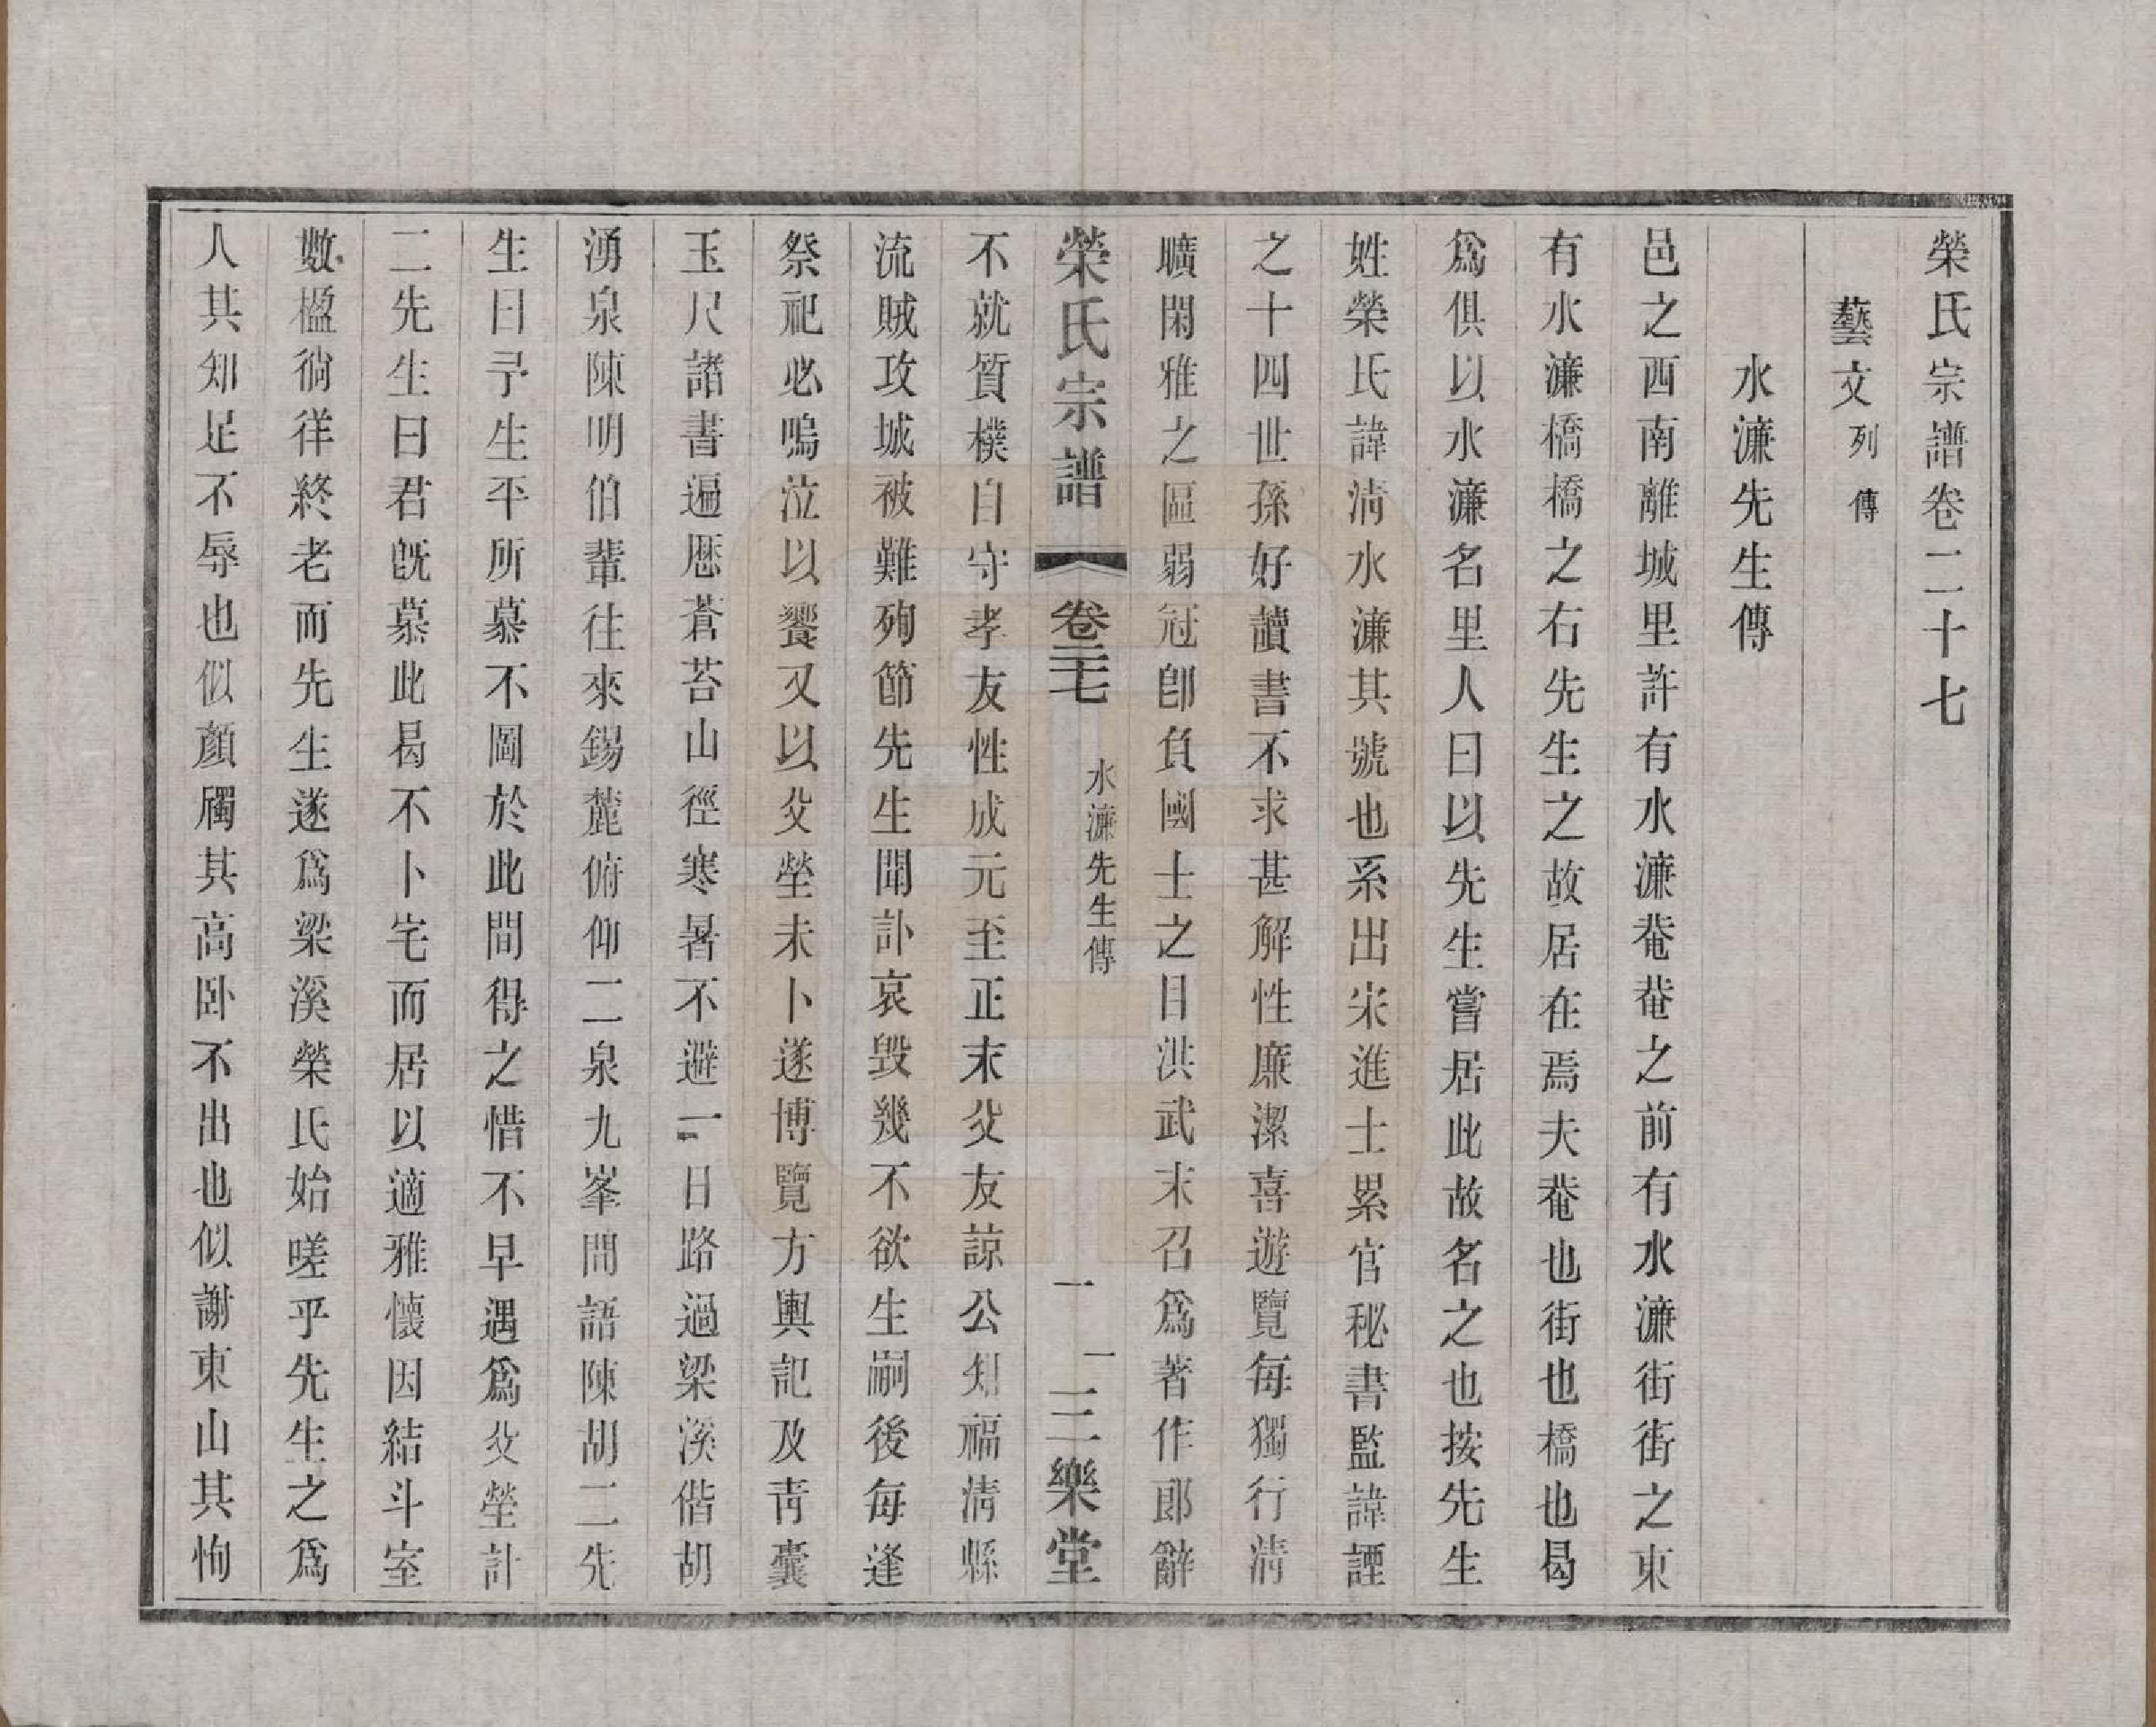 榮氏宗譜卷二十七
藝文 列傳
水濂先生傳
邑之西南離城里許有水濂菴菴之前有水濂街街之東
有水濂橋橋之右先生之故居在焉夫菴也街也橋也曷
爲俱以水濂名里人曰以先生嘗居此故名之也按先生
姓榮氏諱淸水濂其號也系出宋進士累官秘書監諱諲
之十四世孫好讀書不求甚解性廉潔喜遊覽每獨行淸
曠閑雅之區弱冠卽負國士之目洪武末召爲著作郎辭
榮氏宗譜 卷二十七 水濂先生傳 一 一 三樂堂
不就質樸自守孝友性成元至正末父友諒公知福淸縣
流賊攻城被難殉節先生聞訃哀毀幾不欲生嗣後每逢
祭祀必嗚泣以饗又以父塋未卜遂博覽方輿記及靑囊
玉尺諸書遍歷蒼苔山徑寒暑不避一日路過梁溪偕胡
湧泉陳明伯輩往來錫麓俯仰二泉九峯間語陳胡二先
生曰予生平所慕不圖於此間得之惜不早遇爲父塋計
二先生曰君旣慕此曷不卜宅而居以適雅懷因結斗室
數楹徜徉終老而先生遂爲梁溪榮氏始嗟乎先生之爲
人其知足不辱也似顏斶其高臥不出也似謝東山其恂